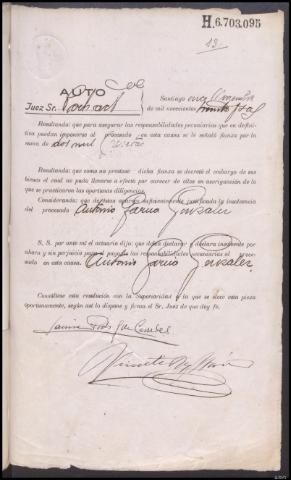 H.6.703.095
13
AUTO
Juez Sr.
Santiago once
de mil novecientos treinta y
Resultando: que para asegurar las responsabilidades pecuniarias que en definitiva
puedan imponerse al procesado en esta causa se le señaló fianza por la
suma de dos mil pesetas
Resultando: que como no prestase dicha fianza se decretó el embargo de sus
bienes el cual no pudo llevarse a efecto por carecer de ellos en averiguación de lo que
se practicaron las oportunas diligencias
Considerando: que de éstas aparece suficientemente justificada la insolvencia
del procesado Antonio García González
S. S. por ante mí el actuario dijo: que debía declarar y declara insolvente por
ahora y sin perjuicio para el pago de las responsabilidades ulteriores al procesado
en esta causa. Antonio García González
Consúltese esta resolución con la Superioridad a la que se eleve esta pieza
oportunamente, según así lo dispone y firma el Sr. Juez de que doy fe.